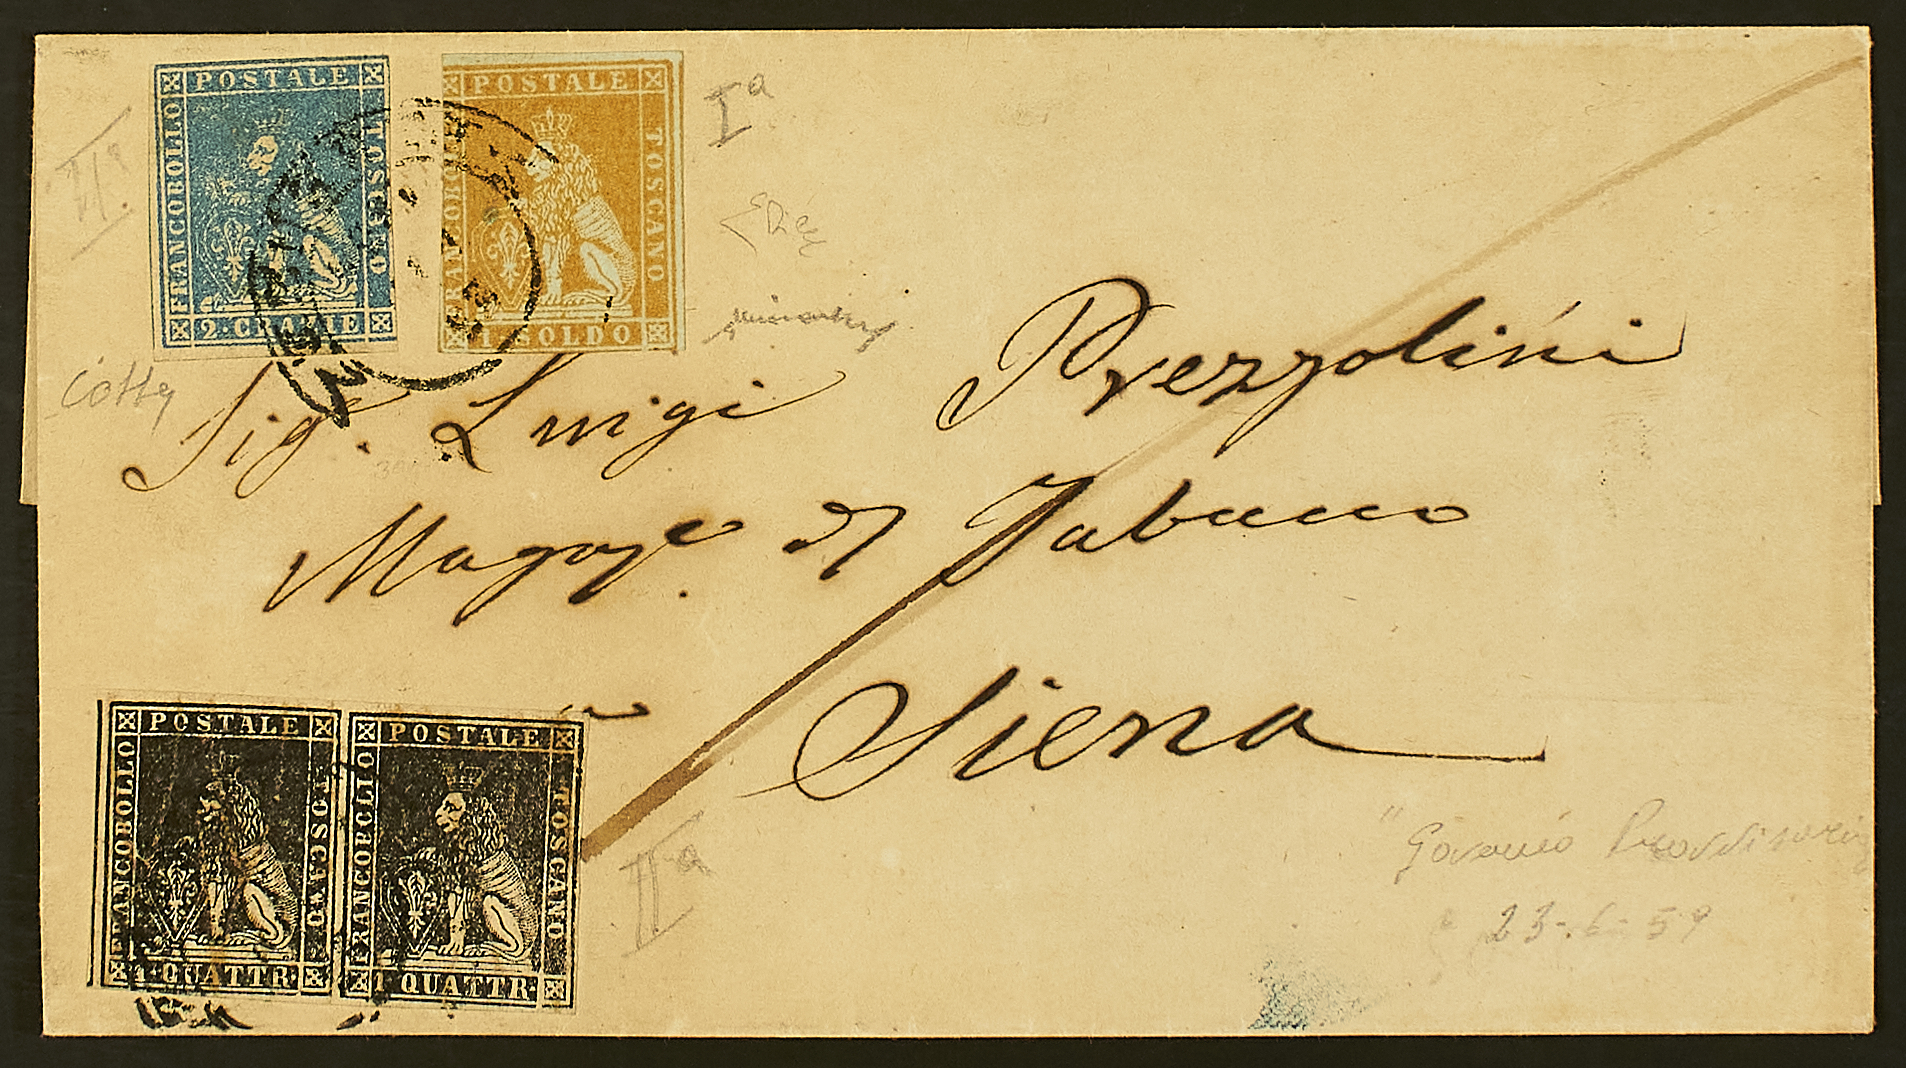 POSTALE
FRANCOBOLLO
TOSCANO
2. CRAZIE
POSTALE
FRANCOBOLLO
TOSCANO
1 SOLDO
Iª
IIª
Sigʳ. Luigi Prezzolini
Magazᵉ di Tabacco
Siena
POSTALE
FRANCOBOLLO
TOSCANO
1 QUATTR:
POSTALE
FRANCOBOLLO
TOSCANO
1 QUATTR:
IIª
"Governo Provvisorio
23-6-59